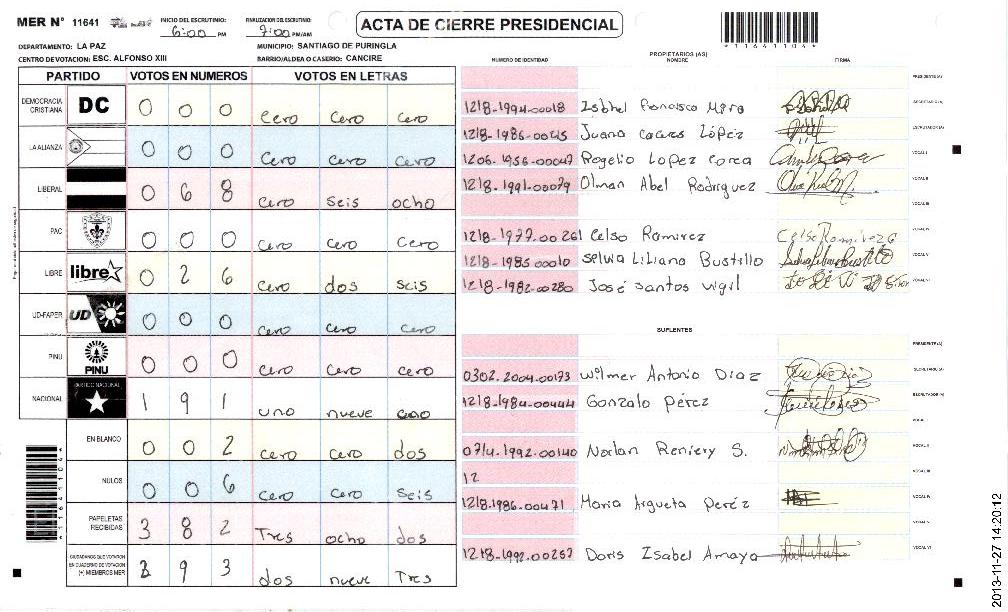 MER Nº 11641
INICIO DEL ESCRUTINIO: 6:00 PM
FINALIZACION DEL ESCRUTINIO: 7:00 PM/AM
ACTA DE CIERRE PRESIDENCIAL
*11641104*
DEPARTAMENTO: LA PAZ
MUNICIPIO: SANTIAGO DE PURINGLA
CENTRO DE VOTACION: ESC. ALFONSO XIII
BARRIO/ALDEA O CASERIO: CANCIRE
PARTIDO VOTOS EN NUMEROS VOTOS EN LETRAS
DEMOCRACIA CRISTIANA DC 0 0 0 cero cero cero
LA ALIANZA 0 0 0 cero cero cero
LIBERAL 0 6 8 cero seis ocho
PAC 0 0 0 cero cero cero
LIBRE libre 0 2 6 cero dos seis
UD-FAPER UD 0 0 0 cero cero cero
PINU PINU 0 0 0 cero cero cero
NACIONAL PARTIDO NACIONAL 1 9 1 uno nueve
EN BLANCO 0 0 2 cero cero dos
NULOS 0 0 6 cero cero seis
PAPELETAS RECIBIDAS 3 8 2 Tres ocho dos
CIUDADANOS QUE VOTARON EN CUADERNO DE VOTACION (+) MIEMBROS MER 9 3 dos nueve Tres
*11641104*
PROPIETARIOS (AS)
NUMERO DE IDENTIDAD NOMBRE FIRMA
PRESIDENTE (A)
1218-1994-00018 Isabel Francisco Mejra SECRETARIO (A)
1218-1986-00045 Juana Caceres López ESCRUTADOR (A)
1206-1956-00047 Rogelio Lopez Corea VOCAL I
1218-1991-00079 Olman Abel Rodriguez VOCAL II
VOCAL III
1218-1977-00261 Celso Ramirez Celso Ramirez VOCAL IV
1218-1985-00010 Selvia Liliana Bustillo VOCAL V
1218-1982-00280 José santos vigil VOCAL VI
SUPLENTES
PRESIDENTE (A)
0302-2004-00173 Wilmer Antonio Diaz SECRETARIO (A)
1218-1984-00444 Gonzalo Pérez ESCRUTADOR (A)
VOCAL I
0714-1992-00140 Norlan Reniery S. VOCAL II
12 VOCAL III
1218-1986-00471 Maria Argueta Peréz VOCAL IV
VOCAL V
1218-1992-00257 Doris Isabel Amaya VOCAL VI
2013-11-27 14:20:12